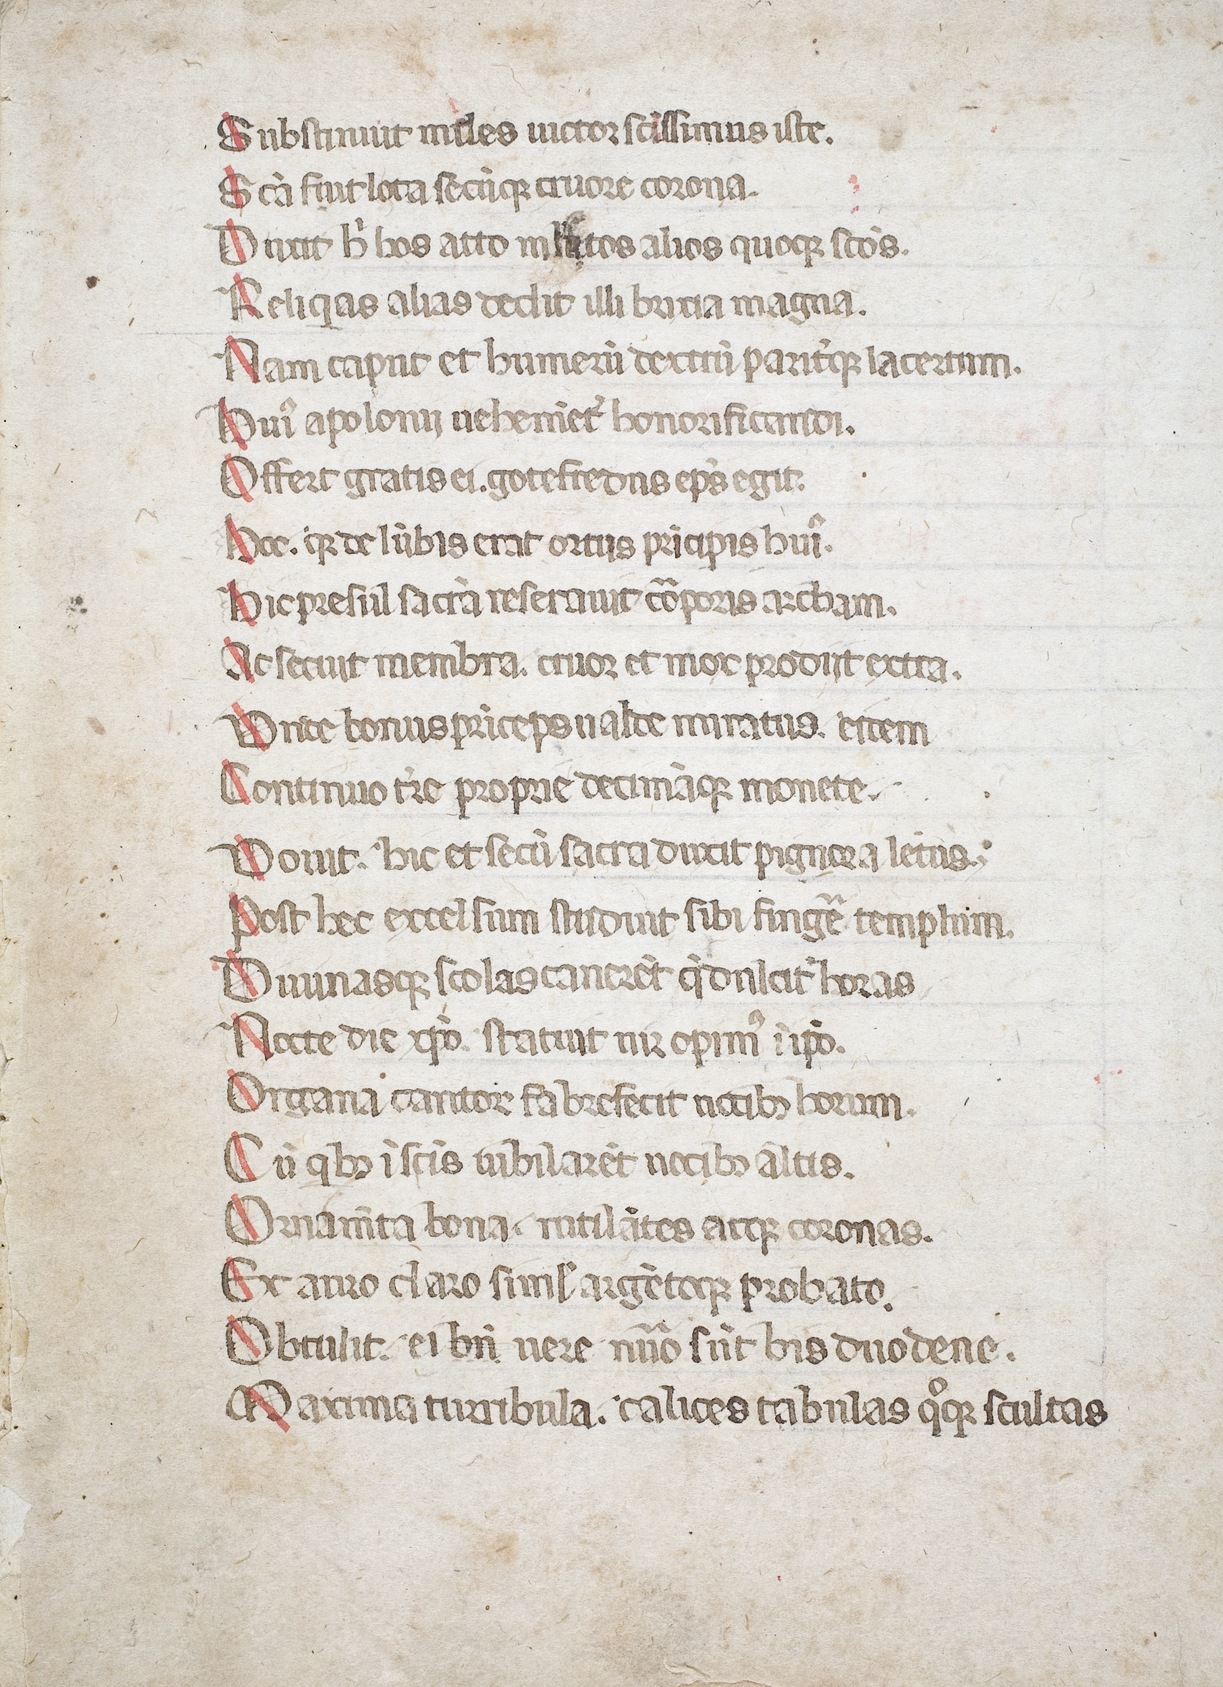 Substinuit miles uictor scissimus iste.
Scā fiut lota secūqꝫ cruore corona.
Duxit hᷤ hos atto multos alios quoqꝫ scōs.
Reliqias alias dedit illi brixia magna.
Nam caput et humerū dextrū paritᷤqꝫ lacertum.
Huiꝰ apolonij uehemētᷤ honorificandi.
Offert gratis ei. gotefredus ep̄s egit.
Hoc. qꝫ de lūbis erat ortus prīcipis huiꝰ.
Hic presul sacrā reserauit corꝑoris archam.
Ac secuit membra. cruor et mox prodijt extra.
Vnde bonus prīceps ualde miratus. eidem
Continuo tr̄re proprie decimāqꝫ monete.
Douit. hic et secū sacra duxit pignora letus.
Post hec excelsum studuit sibi fingē templum.
Diuinasqꝫ scolas cancrēt q̄ dulcitᷤ horas
Nocte die xp̄o. statuit uir opimꝰ ī ip̄o.
Organa cantor fabrefecit uocibꝫ horum.
Cū qbꝫ ī scīs iubilarēt uocibꝫ altis.
Ornamīta bona. rutilātes atqꝫ coronas.
Ex auro claro simul argētoqꝫ probato.
Obtulit. ei bn̄ uere nūo sūt bis duodene.
Maxima turribula. calices tabulas qͦqꝫ scultas